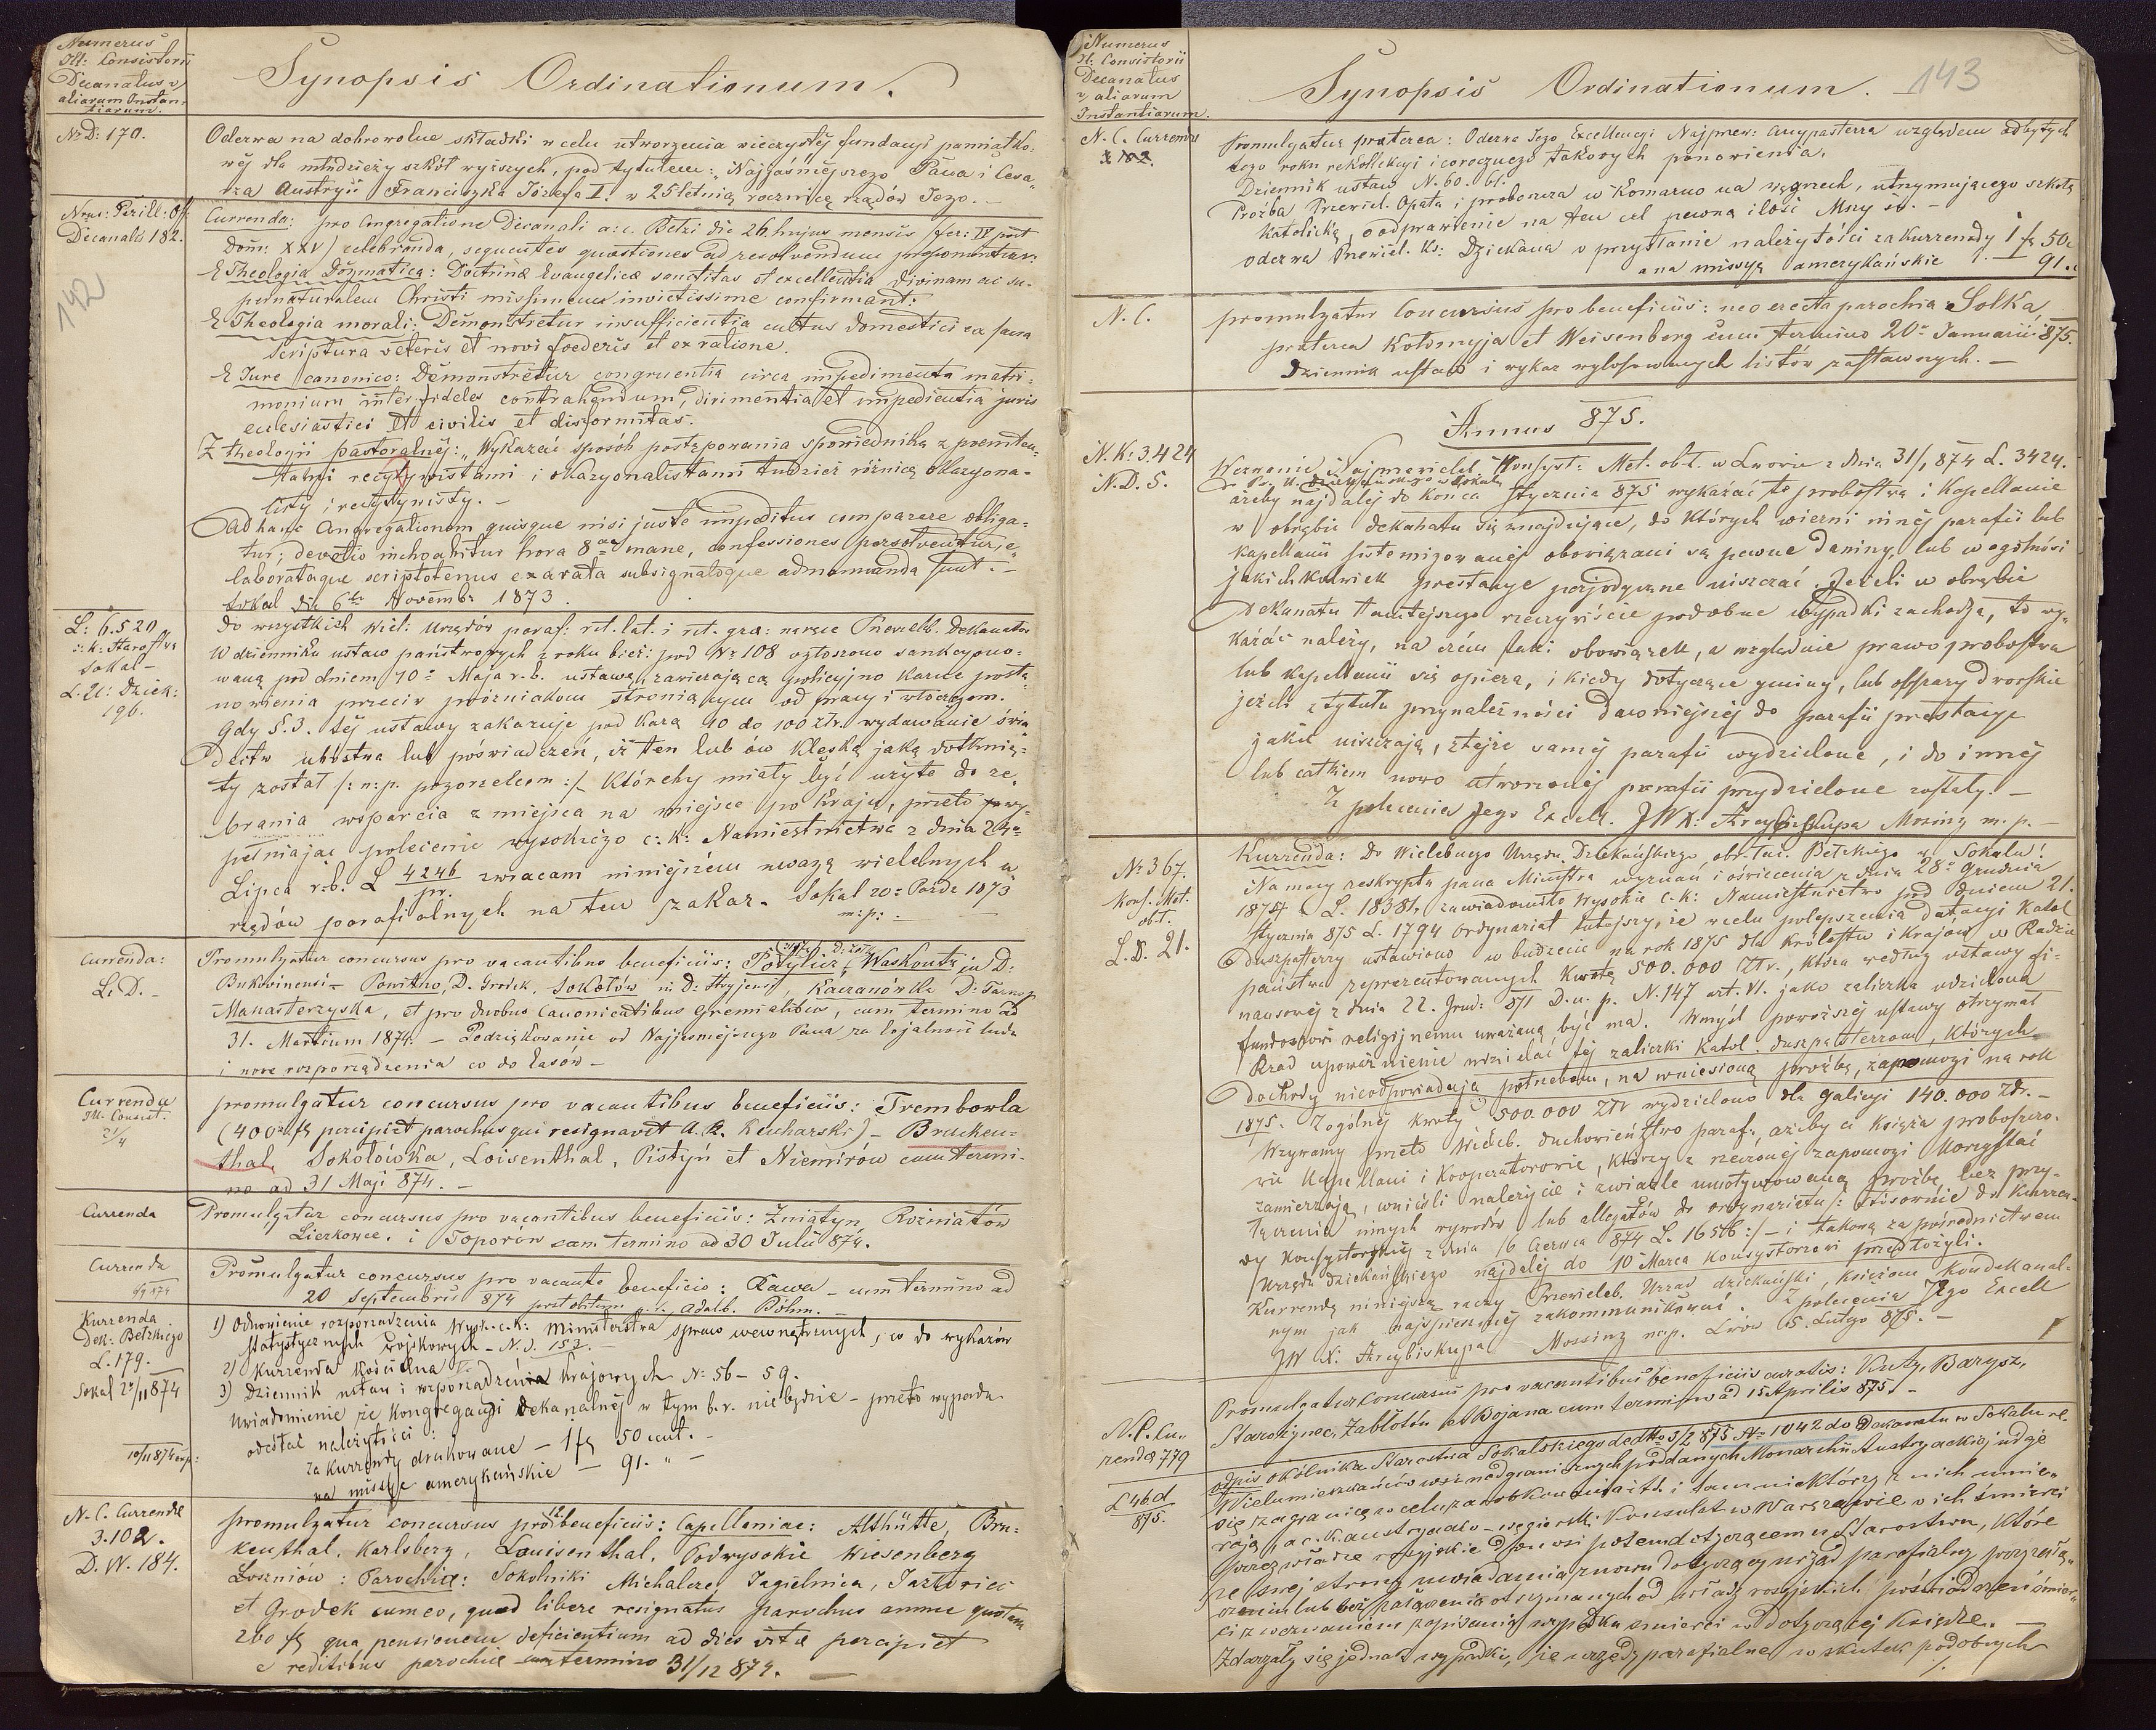 Numerus
Ill: Consistorii
Decanatus
aliarum Instan-
tiarum.
Synopsis Ordinationum.
142
Nr D: 170.
Odezwa na dobrowolne składki w celu utworzenia wieczystéj fundacyi pamiątko-
wéj dla młodzieży szkół wyższych, pod tytułem: "Najjaśniejszego Pana i Cesa-
rza Austryi Franciszka Józefa I. w 25 letnią rocznicę rządów Jego. —
Decanalis 182.
Currenda: pro Congregatione Decanali a: c. Belzi die 26. hujus mensis fer: IV post
Dom: XXV celebranda, sequentes quaestiones ad resolvendum proponuntur:
E Theologia Dogmatica: Doctrinae Evangelicae sanctitas et excellentia divinam ac su-
pernaturalem Christi missionem invictissime confirmant.
E Theologia morali: Demonstretur insufficientia cultus domestici ex sacra
scriptura veteris et novi foederis et ex ratione.
E Jure canonico: Demonstretur congruentia circa impedimenta matri-
monium inter fideles contrahendum, dirimentia et impedientia juris
ecclesiastici et civilis et disformitas.
Z theologii pastoralnéj: "Wykazać sposób postępowania spowiednika z peniten-
tami recydywistami i okazyonalistami tudzież różnicę okazyona-
listy i recydywisty. —
Ad hanc Congregationem quisque nisi juste impeditus comparere obliga-
tur; devotio inchoabitur hora 8va mane, confessiones persolventur, e-
laborataque scriptotenus exarata subsignatoque admanuanda sunt. —
Sokal die 6ta Novembr 1873.
L: 6.520
c: k: Starostwa
Sokal —
L. U: Dziek:
196.
Do wszystkich Wiel: Urzędów paraf: rit. lat. i rit. gra: na ręce Przewieleb. Dekanatów
W dzienniku ustaw państwowych z roku bież: pod Nr 108 ogłoszono sankcyono-
waną pod dniem 10º Maja r. b. ustawę, zawierającą policyjno karne posta-
nowienia przeciw próżniakom stroniącym od pracy i włóczęgom.
Gdy §. 3. téj ustawy zakazuje pod karą 10 do 100 złr. wydawanie świa-
dectw ubóstwa lub poświadczeń, iż ten lub ów klęską jaką dotknię-
ty został /: n: p. pogorzelcom :/ któreby miały być użyte do ze-
brania wsparcia z miejsca na miejsce po kraju, przeto wy-
pełniając polecenie wysokiego c: k: Namiestnictwa z dnia 24º
Lipca r. b. L 4246/pr. zwracam niniejszém uwagę wielebnych u-
rzędów parafialnych na ten zakaz. Sokal 20º Paźdz 1873
m: p: —
Currenda:
L. D. —
Promulgatur concursus pro vacantibus beneficiis: Potylicz, Waskoutz in D:
Bukovinensi — Powitno, D. Grodek, Sokołów in D: Stryjensi, Kaczanówka D: Tarnop
Monasterzyska, et pro duobus Canonicatibus Gremialibus, cum termino ad
31. Martium 1874. — Podziękowanie od Najjaśniejszego Pana za lojalność ludu
i nowe rozporządzenia co do lasów —
Currenda
Ill. Consist.
21/4
promulgatur concursus pro vacantibus beneficiis: Trembowla
(400 fl percipiet parochus qui resignavit A. R. Kucharski) — Brucken-
thal, Sokołówka, Loisenthal, Pistyń et Niemirow cum termi-
no ad 31 Maji 874. —
Currenda
Promulgatur concursus pro vacantibus beneficiis: Żniatyn, Rożniatów
Lieżkowce, i Toporów cum termino ad 30 Julii 874.
Currenda
Promulgatur concursus pro vacante beneficio: Rawa — cum termino ad
20 Septembris 874 post obitum p. Adalb. Böhm. —
Kurrenda
Dek: Bełzkiego
L. 179.
Sokal 2º/11 874
1) Odnowienie rozporządzenia Wys. c. k: Ministerstwa spraw wewnętrznych, co do wykazów
statystycznych wojskowych — N. D. 153. —
2) Kurrenda Kościelna
3) Dziennik ustaw i rozporządzenia krajowych Nr 56 – 59.
Uwiadomienie że kongregacyi dekanalnéj w tym b. r. nie będzie — przeto wypada
odesłać należytości:
za kurrendy drukowane — 1 fl 50 cent. —
na missye amerykańskie — 91. " —
10/11 874 exp:
N. C. Currendae
3.102.
D. N. 184.
promulgatur concursus pro beneficiis: Capellaniae: Althütte, Bru-
kenthal, Karlsberg, Louisenthal, Podwysokie Wiesenberg
Łoszniów: Parochiae: Sokolniki Michalcze, Jagielnica, Jazłowiec
et Grodek cum eo, quod libere resignatus parochus annue quotam
200 fl qua pensionem deficientium ad dies vitae percipiet
e reditibus parochiae cum termino 31/12 874. —
Numerus
Il. Consistorii
Decanatus
aliarum
Instantiarum.
Synopsis Ordinationum. 143
N. C. Currendae
3 102.
Promulgatur praeterea: Odezwa Jego Excellencyi Najprzew: Arcypasterza względem odbytych
tego roku rekollekcyi i corocznego takowych ponowienia.
Dziennik ustaw N. 60. 61.
Prośba Przewiel. Opata i proboszcza w Komarno na Węgrzech, utrzymującego szkołę
katolicką, o odprawienie na ten cel pewną ilość Mszy św. —
Odezwa Przewiel. Ks: Dziekana o przysłanie należytości za kurrendy 1 fl 50 c
a na missye amerykańskie 91. c
N. C.
promulgatur concursus pro beneficiis: neo erecta parochia Solka,
praeterea Kołomyja et Weisenberg cum termino 20º Januarii 875.
Dziennik ustaw i wykaz wylosowanych listów zastawnych. —
Annus 875.
N. K: 3.424
N. D. 5.
Wezwanie Najprzewieleb. Konsyst: Met. ob. ł. w Lwowie z dnia 31/ 874 L. 3424.
ażeby najdaléj do końca Stycznia 875 wykazać te probostwa i Kapellanie
w obrębie dekanatu się znajdujące, do których wierni innéj parafii lub
kapellanii systemizowanéj obowiązani są pewne daniny lub w ogólności
jakichkolwiek prestacye perjodyczne uiszczać. Jeżeli w obrębie
Dekanatu tamtejszego rzeczywiście podobne wypadki zachodzą, to wy-
kazać należy, na czém taki obowiązek, a względnie prawo probostwa
lub kapellanii się opiera, i kiedy dotyczące gminy, lub obszary dworskie
jeżeli z tytułu przynależności dawniejszéj do parafii prestacye
jakie uiszczają, z tejże saméj parafii wydzielone, i do innéj
lub całkiem nowo utworzonéj parafii przydzielone zostały. —
Z polecenia Jego Excell. JWX: Arcybiskupa Mosing m. p. —
Nr 367.
Kons. Met.
obł.
L. D. 21.
Kurrenda: Do Wielebnego Urzędu Dziekańskiego obr. łac. Bełzkiego w Sokalu!
Na mocy reskryptu pana Ministra wyznań i oświecenia z dnia 28º Grudnia
1874 L. 18381, zawiadomiło Wysokie c. k: Namiestnictwo pod dniem 21.
Stycznia 875 L. 1794 Ordynariat tutejszy, że w celu polepszenia dotacyi Katol
Duszpasterzy ustawiono w budżecie na rok 1875 dla królestw i krajów w Radzie
państwa reprezentowanych kwotę 500.000 złr., która według ustawy fi-
nansowéj z dnia 22. Grud: 871 D. u. p. N. 147 art. VI. jako zaliczka udzielona
funduszowi religijnemu uważaną być ma. Wmyśl powyższéj ustawy otrzymał
Rząd upoważnienie udzielać téj zaliczki katol. duszpasterzom, których
Dochody nieodpowiadają potrzebom, na wniesioną prośbę, zapomogi na rok
1875. Z ogólnéj kwoty 500.000 Złr wydzielono dla Galicyi 140.000 złr. —
Wzywamy przeto Wieleb. duchowieństwo paraf:, ażeby ci księża proboszczo-
wie Kapellani i Kooperatorowie, którzy z rzeczonéj zapomogi korzystać
zamierzają, wnieśli należycie i zwięźle umotywowaną prośbę bez przy-
łączenia innych wywodów lub allegatów do ordynariatu /: stosownie do kurren-
dy Konsystorskiéj z dnia 16 Czerwca 874 L. 1656 :/ — i takową za pośrednictwem
Urzędu dziekańskiego najdaléj do 10 Marca Konsystorzowi przedłożyli.
Kurrendę niniejszą raczy Przewieleb. Urząd dziekański, księżom kondekanal-
nym jak najspieszniéj zakommunikować. Z polecenia Jego Excell
JW X. Arcybiskupa Mossing mp. Lwów 5. Lutego 875. —
N. C. Cu-
rendae 779
Promulgatur Concursus pro vacantibus beneficiis curatis: Kuty, Barysz,
Starożyniec, Zabłotów et Bojana cum termino ad 15 Aprilis 875. —
L 46 d.
875.
Odpis okólnika Starostwa Sokalskiego ddto 3/2 875 Nr 1042 do Dekanatu w Sokalu rl.
Wielu mieszkańców wsi nadgranicznych poddanych Monarchii Austryackiéj udaje
się za granicę w celu zarobkowania itd. i tam niektórzy z nich umie-
rają, a c. k. austryacko-węgierski Konsulat w Warszawie o ich śmierci
przez władze rosyjskie donosi potem dotyczącemu Starostwu, które
ze swej strony uwiadamia znowu dotyczący urząd parafialny przy załą-
czeniu lub bez załączenia otrzymanych od władz rosyjskich poświadczeń śmier-
ci z wezwaniem zapisania wypadku śmierci w dotyczącej księdze. —
Zdarzały się jednak wypadki, że urzędy parafialne w skutek podobnych